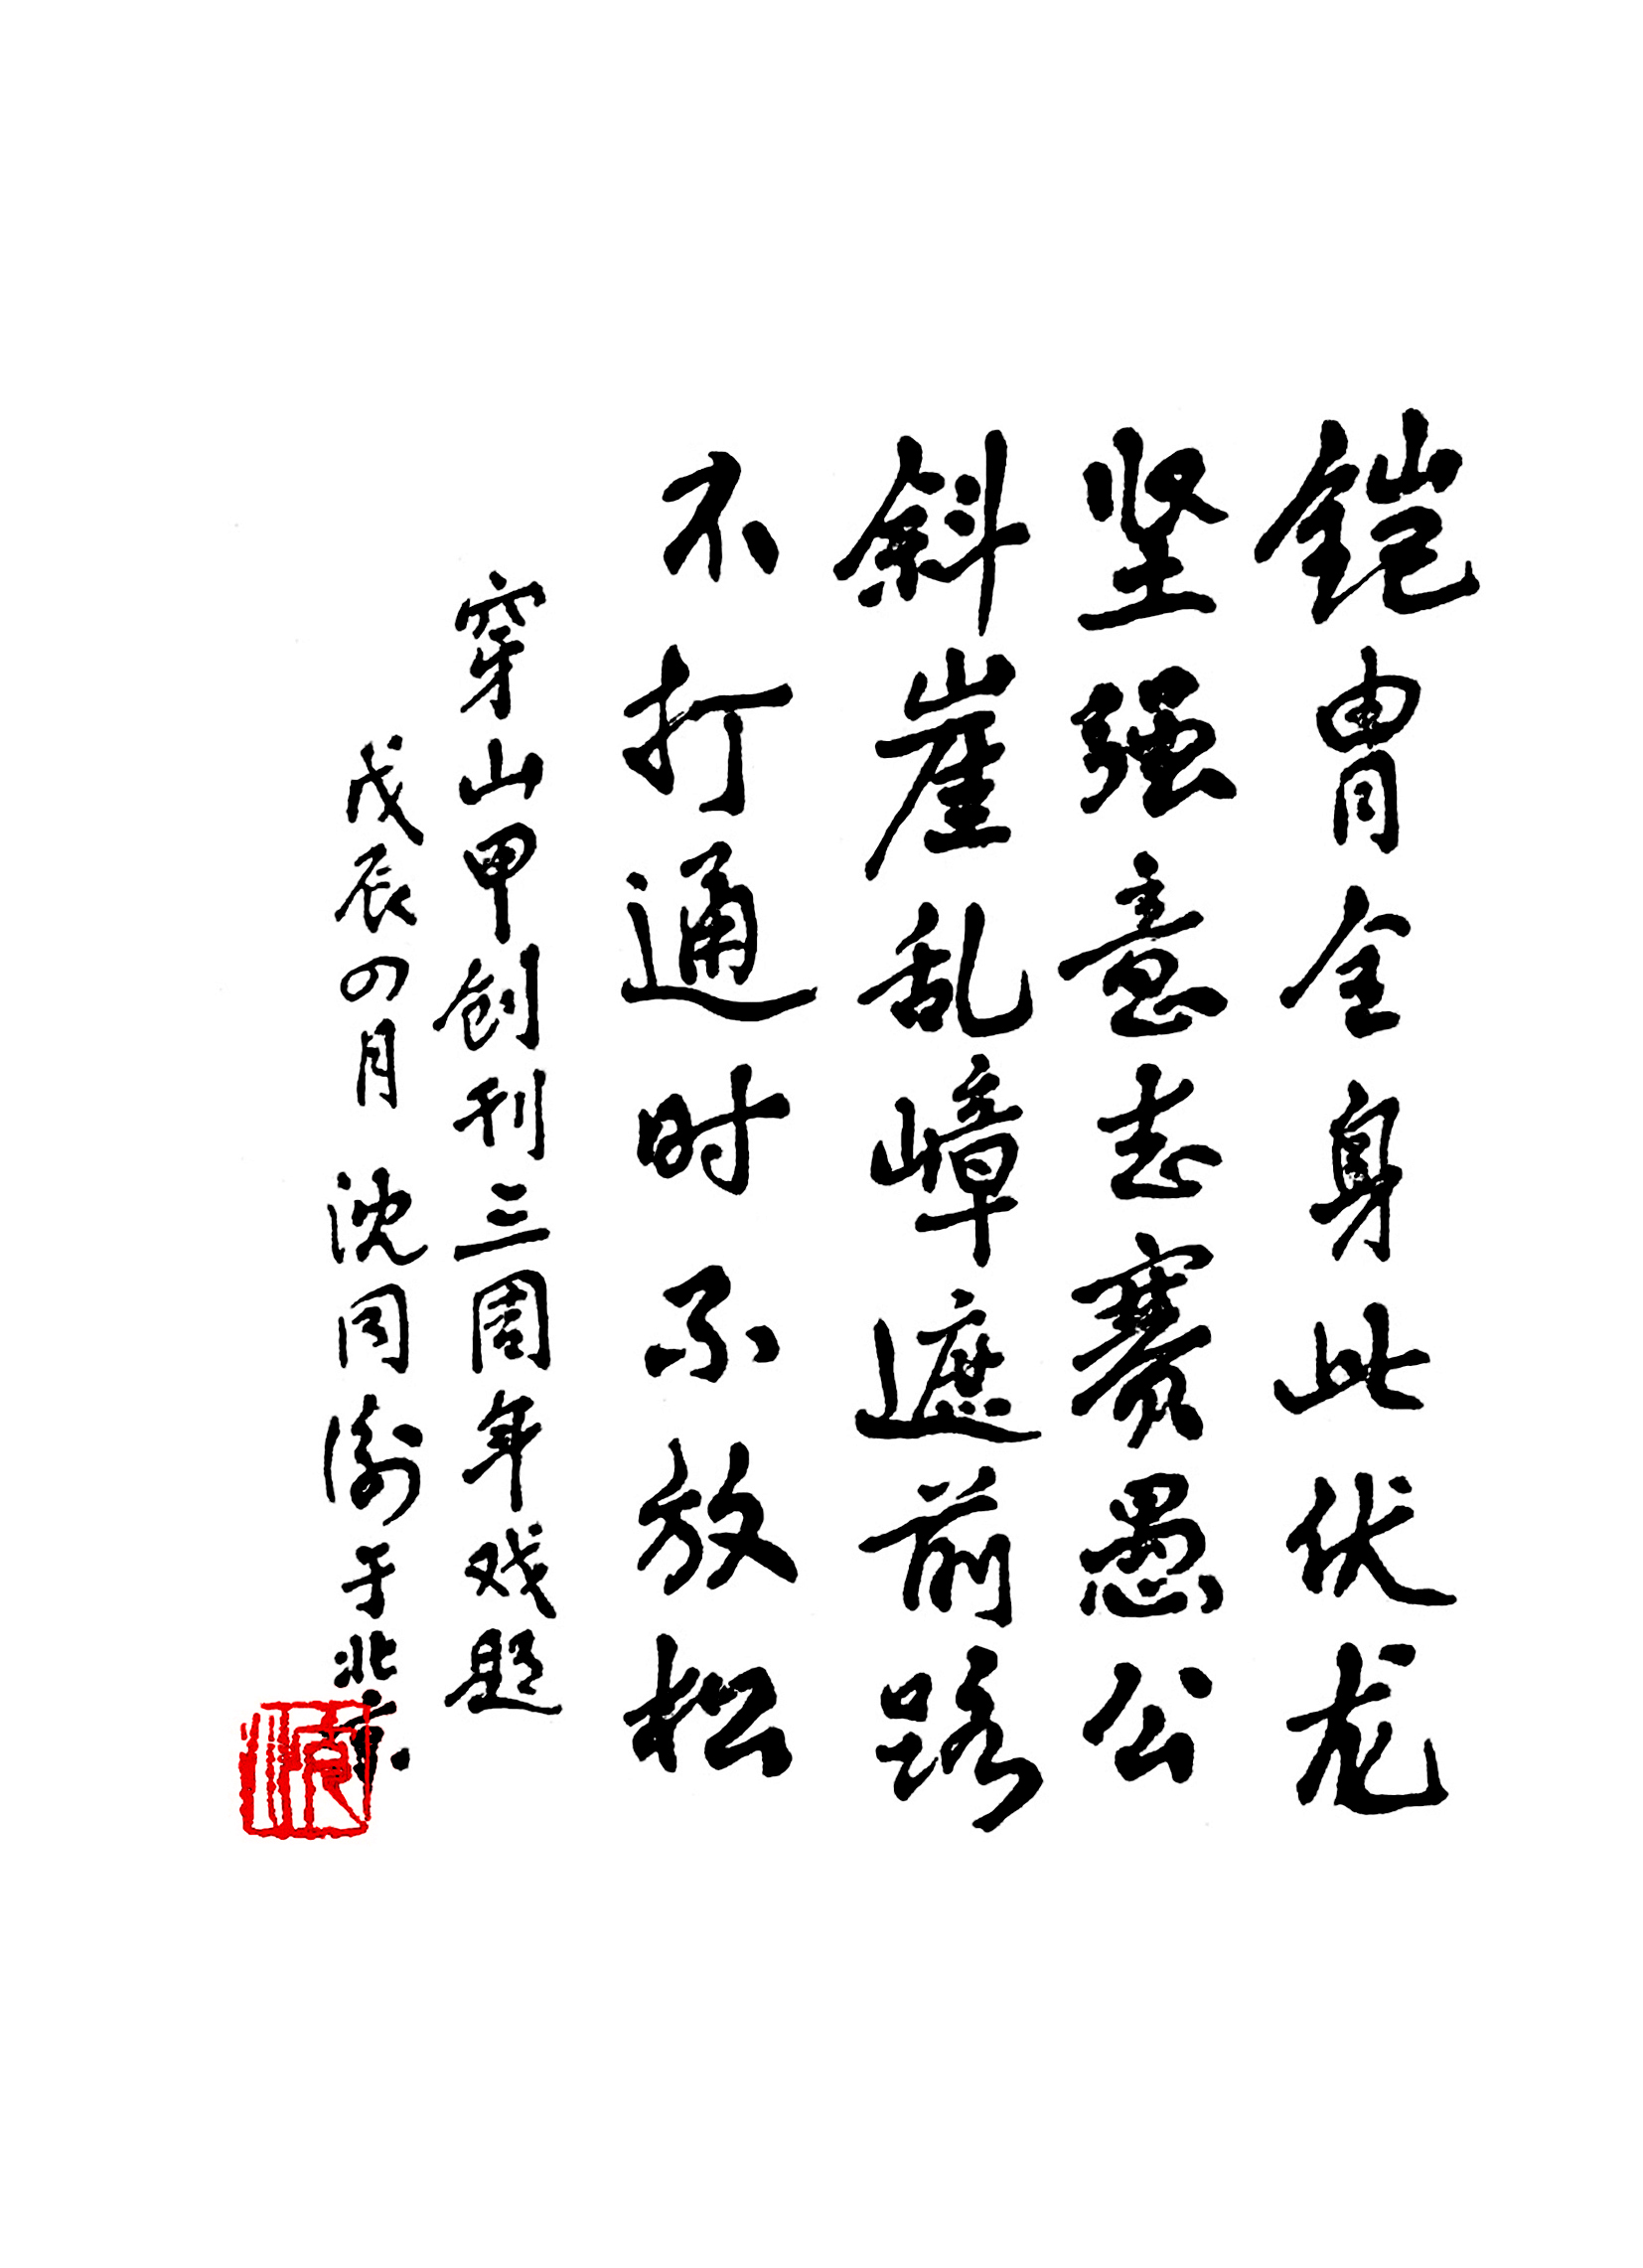 铠胄全身比伏龙
坚强意志赛愚公
斜崖乱嶂遮前路
不打通时不放松
穿山甲创刊三周年戏题
戊辰四月 沈同衡于北京